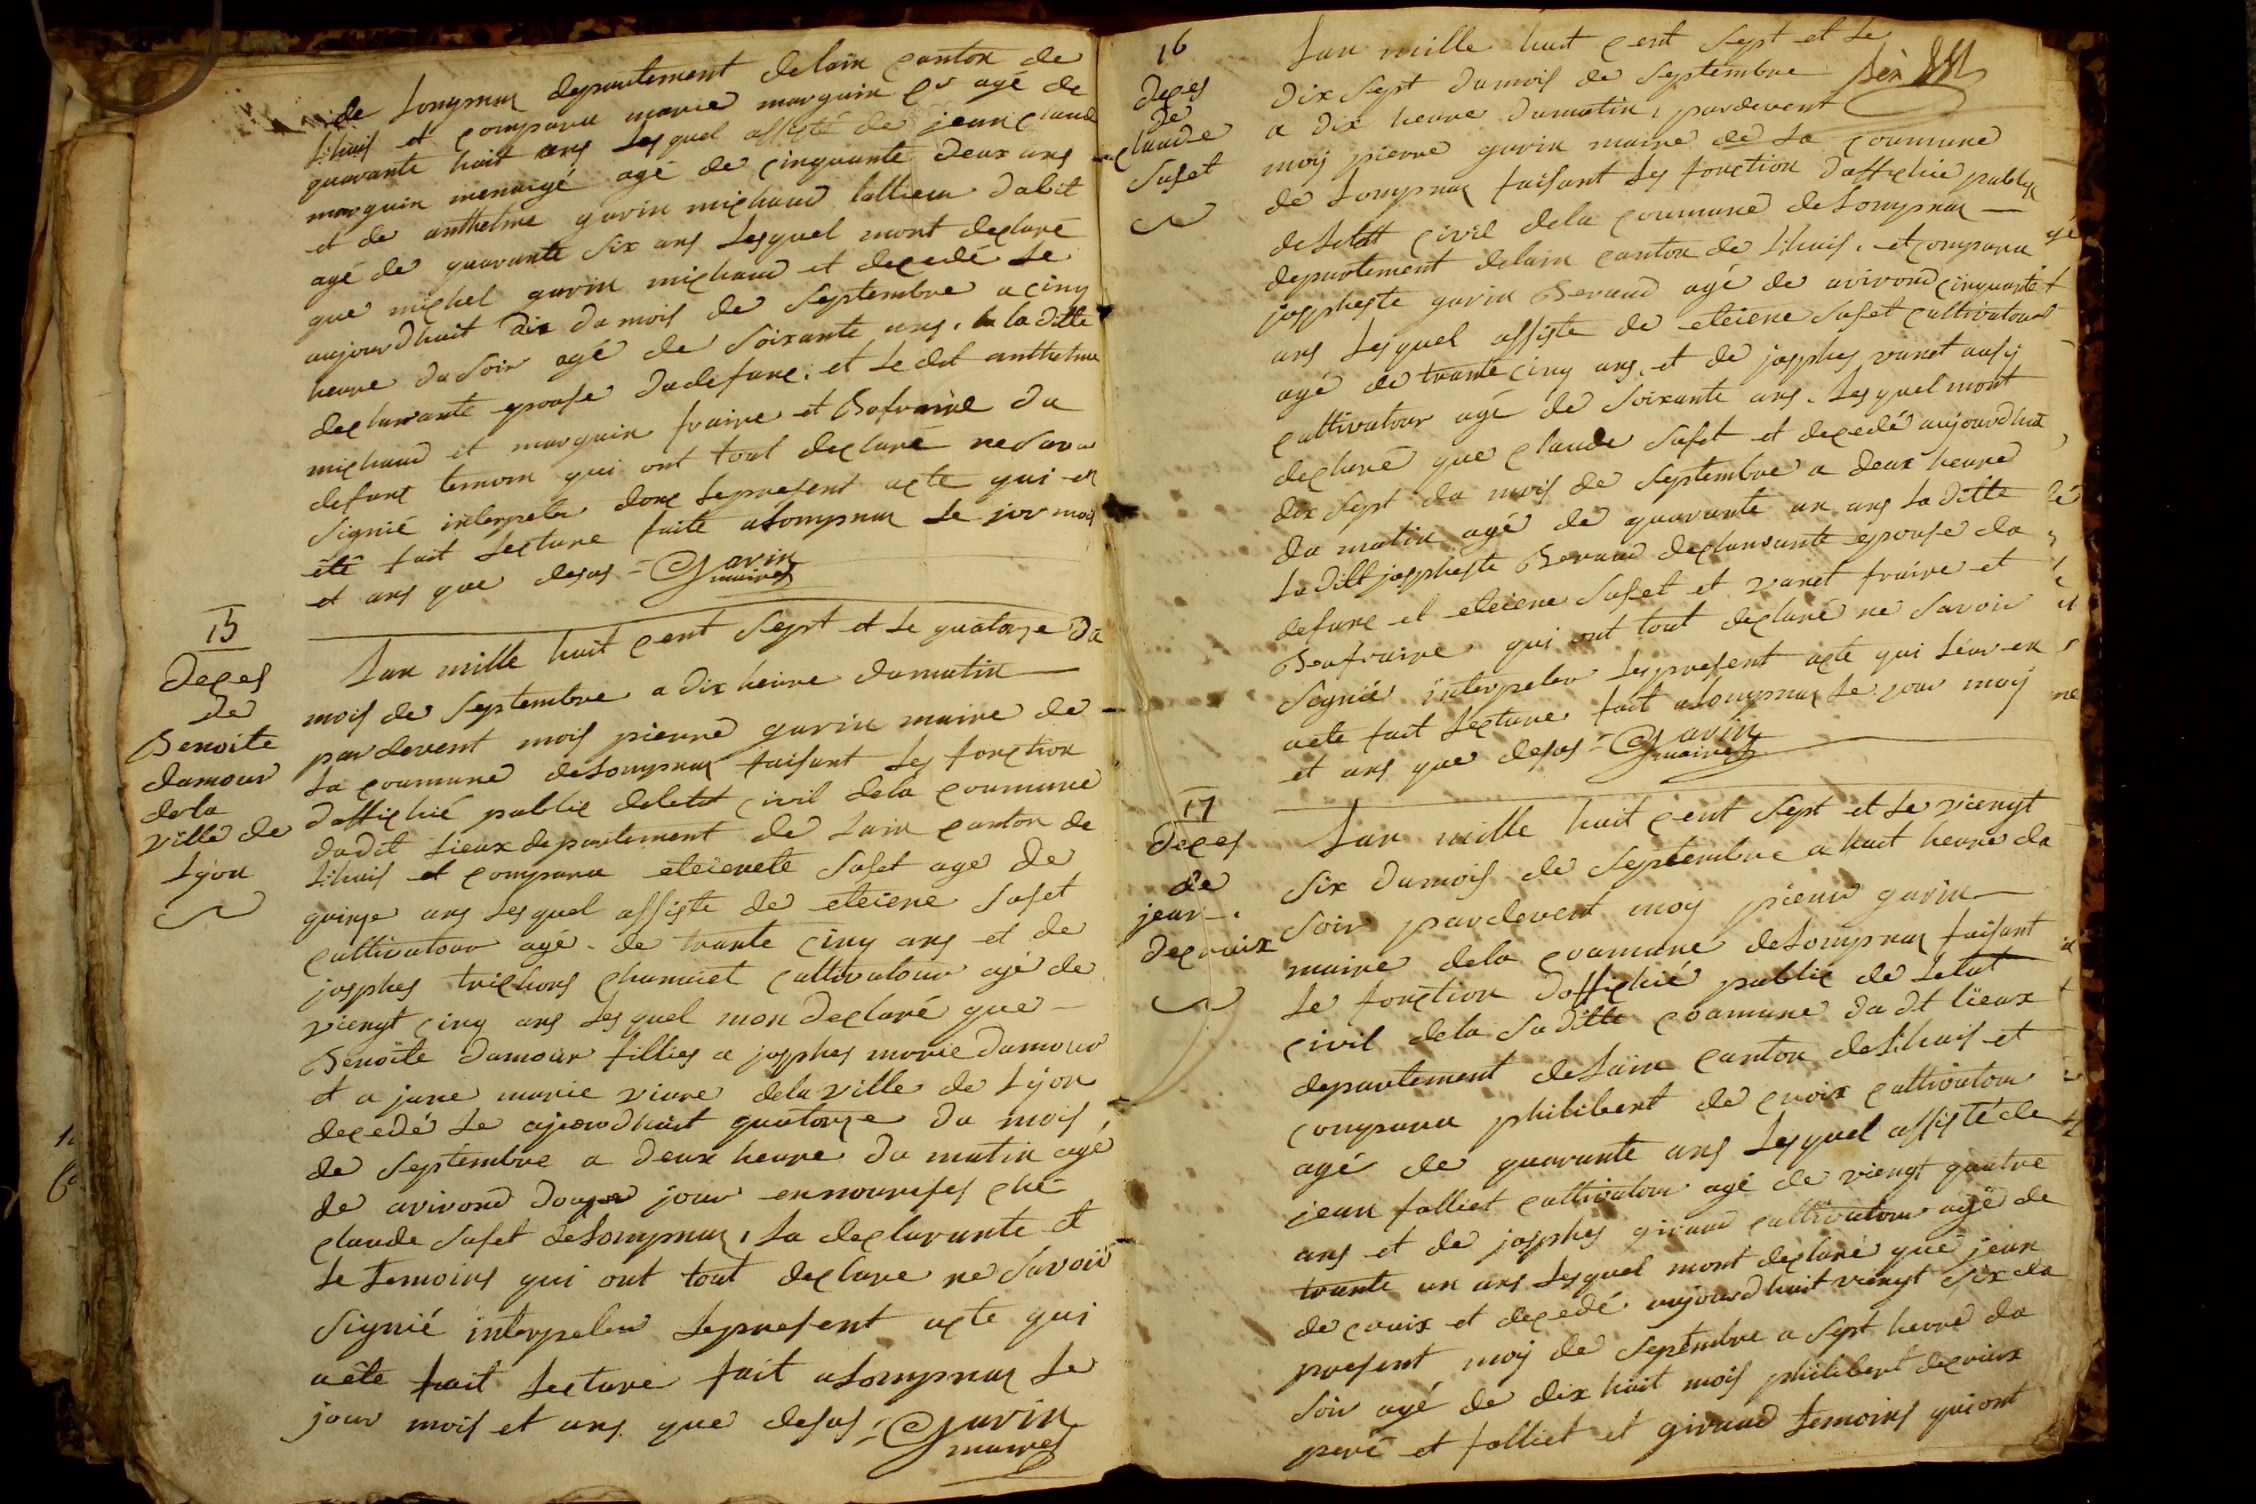 de Lompnas departement delain canton de
Lhuis et comparu marie marguin agé de
quarante huit ans lesquel assisté de jean claude
marguin menaigé agé de cinquante deux ans
et de anthelme gurin michaud tallieur dabit
agé de quarante six ans lesquel mont declaré
que michel gurin michaud et decedé le
aujourdhuit dix du mois de Septembre a cinq
heure du Soir agé de Soixante ans, la ditte
declarante epouse dudefunc; et le dit anthelme
michaud et marguin fraire et Bofraire du
defunc temoin qui ont tout declaré ne Savoir
Signié interpeler donc lepresent acte qui en
été fait lecture faite a Lompnas le jour mois
et ans que desus = Gavin
maires
15
Deces
de
Benoite
damour
dela
ville de
Lyon
Lan mille huit cent Sept et le quatorze du
mois de Septembre a dix heure dumatin
pardevent mois pierre gurin maire de
la coumune deLompnas faisant les fonction
daffichié public deletat civil dela coumune
dudit lieux departement de Lain canton de
Lhuis et comparu eteienete Sufet age de
quinze ans lesquel assiste de eteiene Sufet
cultivatour agé de trante cinq ans et de
josphes trichons chamuet cultivatour agé de
viengt cinq ans lesquel mon declaré que
Benoite damour fillies a josphes morie damour
et a jane marie viare dela ville de Lyon
decedé le ajourdhuit quatorze du mois
de Septembre a deux heure du matin agé
de avirond douze jour ennourises ché
claude Sufet deLompnas, La declarante et
le temoins qui ont tout declare ne Savoir
Signié interpeler lepresent acte qui
aété fait lecture fait aLompnas le
jour mois et ans que desus = Gavin
maires
16
Deces
de
claude
Sufet
Lan mille huit cent Sept et le
dix Sept dumois de Septembre
a dix heure dumatin, pardevent
moy pierre gurin maire de la coumune
de Lompnas faisant les fonction daffichié public
deletat civil dela coumune deLompnas
departement delain canton de Lhuis, et comparu
jospheste gurin Beraud agé de avirond cinquante
ans lesquel assiste de eteiene Sufet cultivatour
agé de trante cinq ans, et de josphes vanet ausy
cultivatour agé de Soixante ans, lesquel mont
declaré que claude Sufet et decedé aujourdhuit
dix Sept du mois de Septembre a deux heure
du matin agé de quarante un ans la ditte
la ditt jospheste Beraud declarante epouse du
defunc et eteiene Sufet et vanet fraire et
Beufraire qui ont tout declaré ne Savoir
Signié interpeler lepresent acte qui leur en
aete fait lecture fait aLompnas le jour moy
et ans que desus = Gavin
maires
17
Deces
de
jean
Decroix
Lan mille huit cent Sept et le viengt
Six dumois de Septembre a huit heure du
Soir pardevent moy pierre gurin
maire dela coumune deLompnas faisant
le fonction daffichié public de letat
civil dela Saditte coumune dudt lieux
departement deLain canton deLhuis et
comparu philibert de croix cultivatour
agé de quarante ans lesquel assisté de
jean folliet cultivatour agé de viengt quatre
ans et de josphes giraud cultivatour agé de
trante un ans lesquel mont declaré que jean
de crouix et decedé aujourdhuit viengt Six du
present moy de Septembre a Sept heure du
Soir agé de dix huit mois philibert decroix
peré et folliet et giraud temoins qui ont